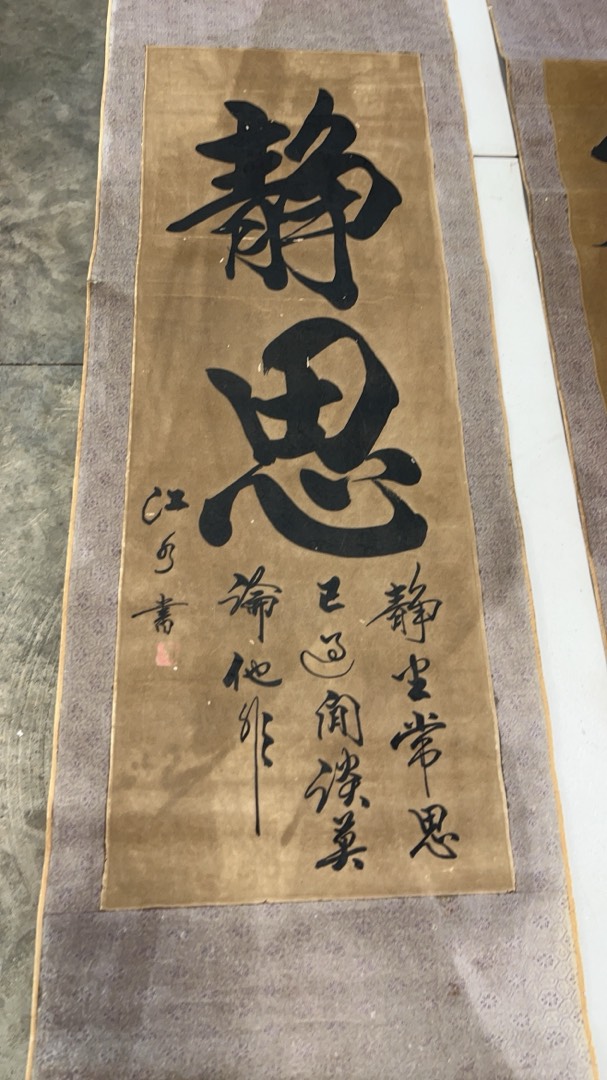 静思
静坐常思
己过闻谈莫
论他非
江水书